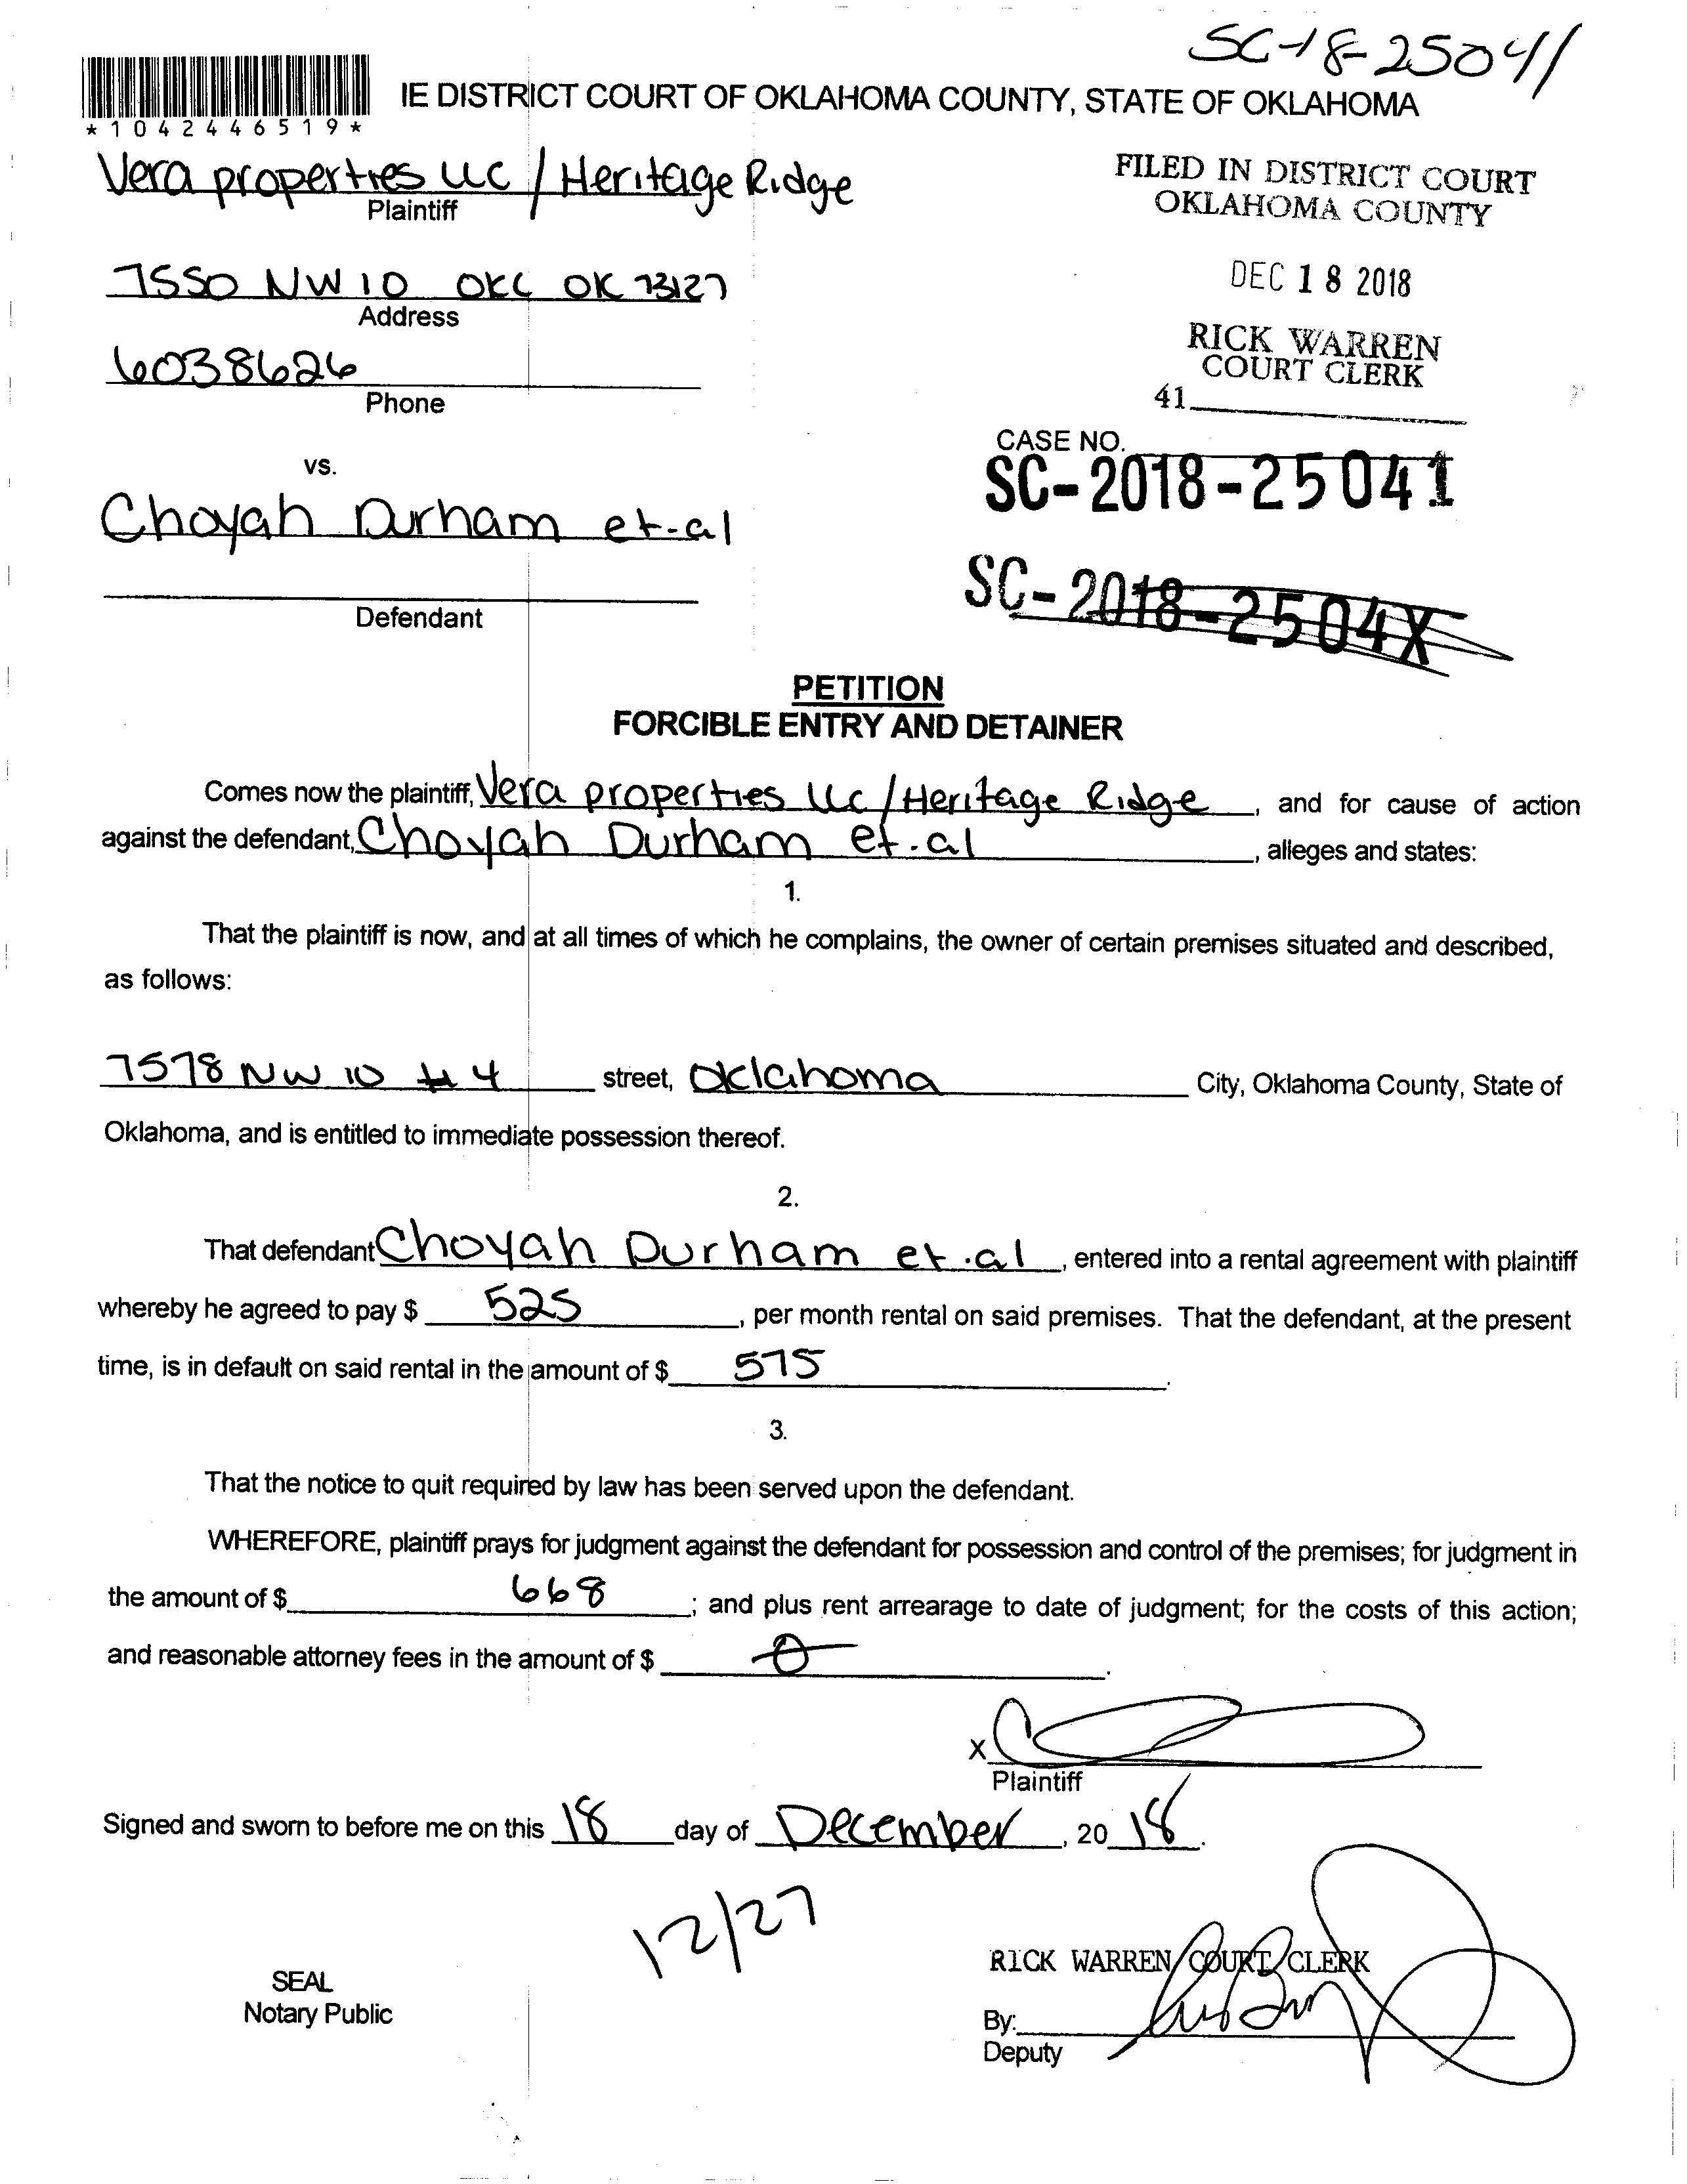 SC-18-25041
IE DISTRICT COURT OF OKLAHOMA COUNTY, STATE OF OKLAHOMA
*1042446519*
Vera properties LLC / Heritage Ridge
Plaintiff
FILED IN DISTRICT COURT
OKLAHOMA COUNTY
7550 NW 10 OKC OK 73127
Address
DEC 18 2018
6038626
Phone
RICK WARREN
COURT CLERK
41
CASE NO.
SC-2018-25041
vs.
Choyah Durham et-al
Defendant
SC-2018-2504X
PETITION
FORCIBLE ENTRY AND DETAINER
Comes now the plaintiff, Vera properties LLC / Heritage Ridge, and for cause of action
against the defendant, Choyah Durham et.al, alleges and states:
1.
That the plaintiff is now, and at all times of which he complains, the owner of certain premises situated and described,
as follows:
7578 NW 10 #4 street, Oklahoma City, Oklahoma County, State of
Oklahoma, and is entitled to immediate possession thereof.
2.
That defendant Choyah Durham et.al, entered into a rental agreement with plaintiff
whereby he agreed to pay $ 525, per month rental on said premises. That the defendant, at the present
time, is in default on said rental in the amount of $ 575.
3.
That the notice to quit required by law has been served upon the defendant.
WHEREFORE, plaintiff prays for judgment against the defendant for possession and control of the premises; for judgment in
the amount of $ 668; and plus rent arrearage to date of judgment; for the costs of this action;
and reasonable attorney fees in the amount of $ 0.
X
Plaintiff
Signed and sworn to before me on this 18 day of December, 2018.
12/27
RICK WARREN COURT CLERK
SEAL
Notary Public
By:
Deputy